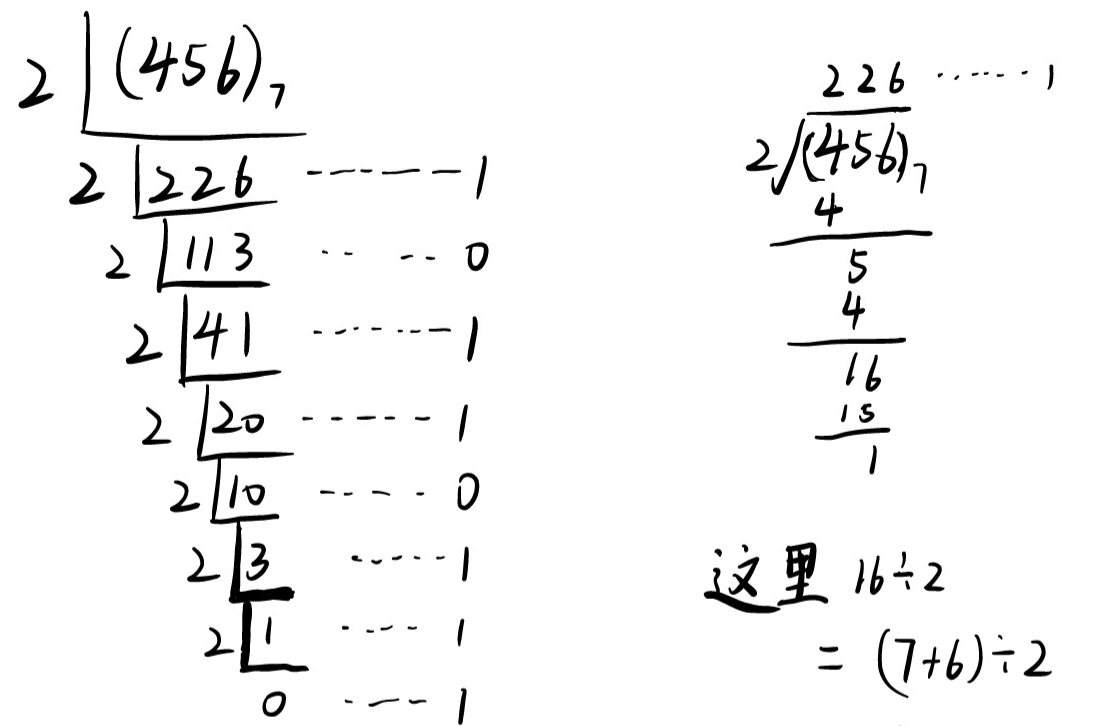 2 (456)₇
2 226 ------- 1
2 113 ·· -- 0
2 41 ------- 1
2 20 ------ 1
2 10 ---- 0
2 3 ----- 1
2 1 ---- 1
0 ---- 1
226 ······· 1
2 (456)₇
4
5
4
16
15
1
这里 16÷2
= (7+6)÷2